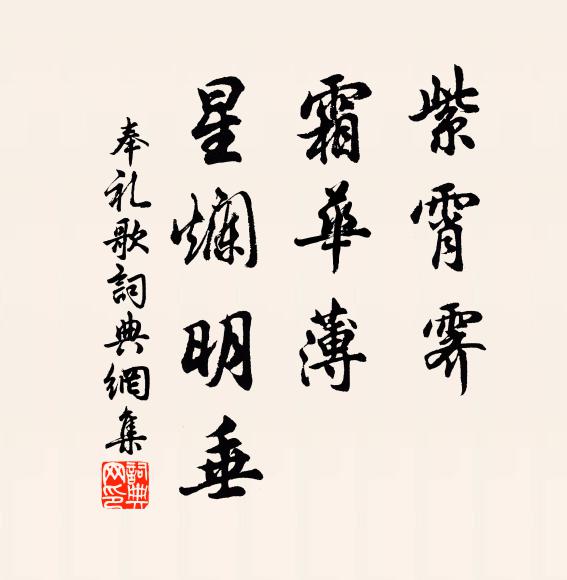 紫霄霽
霜華薄
星爛明垂
奉礼歌詞典網集
詞典网印